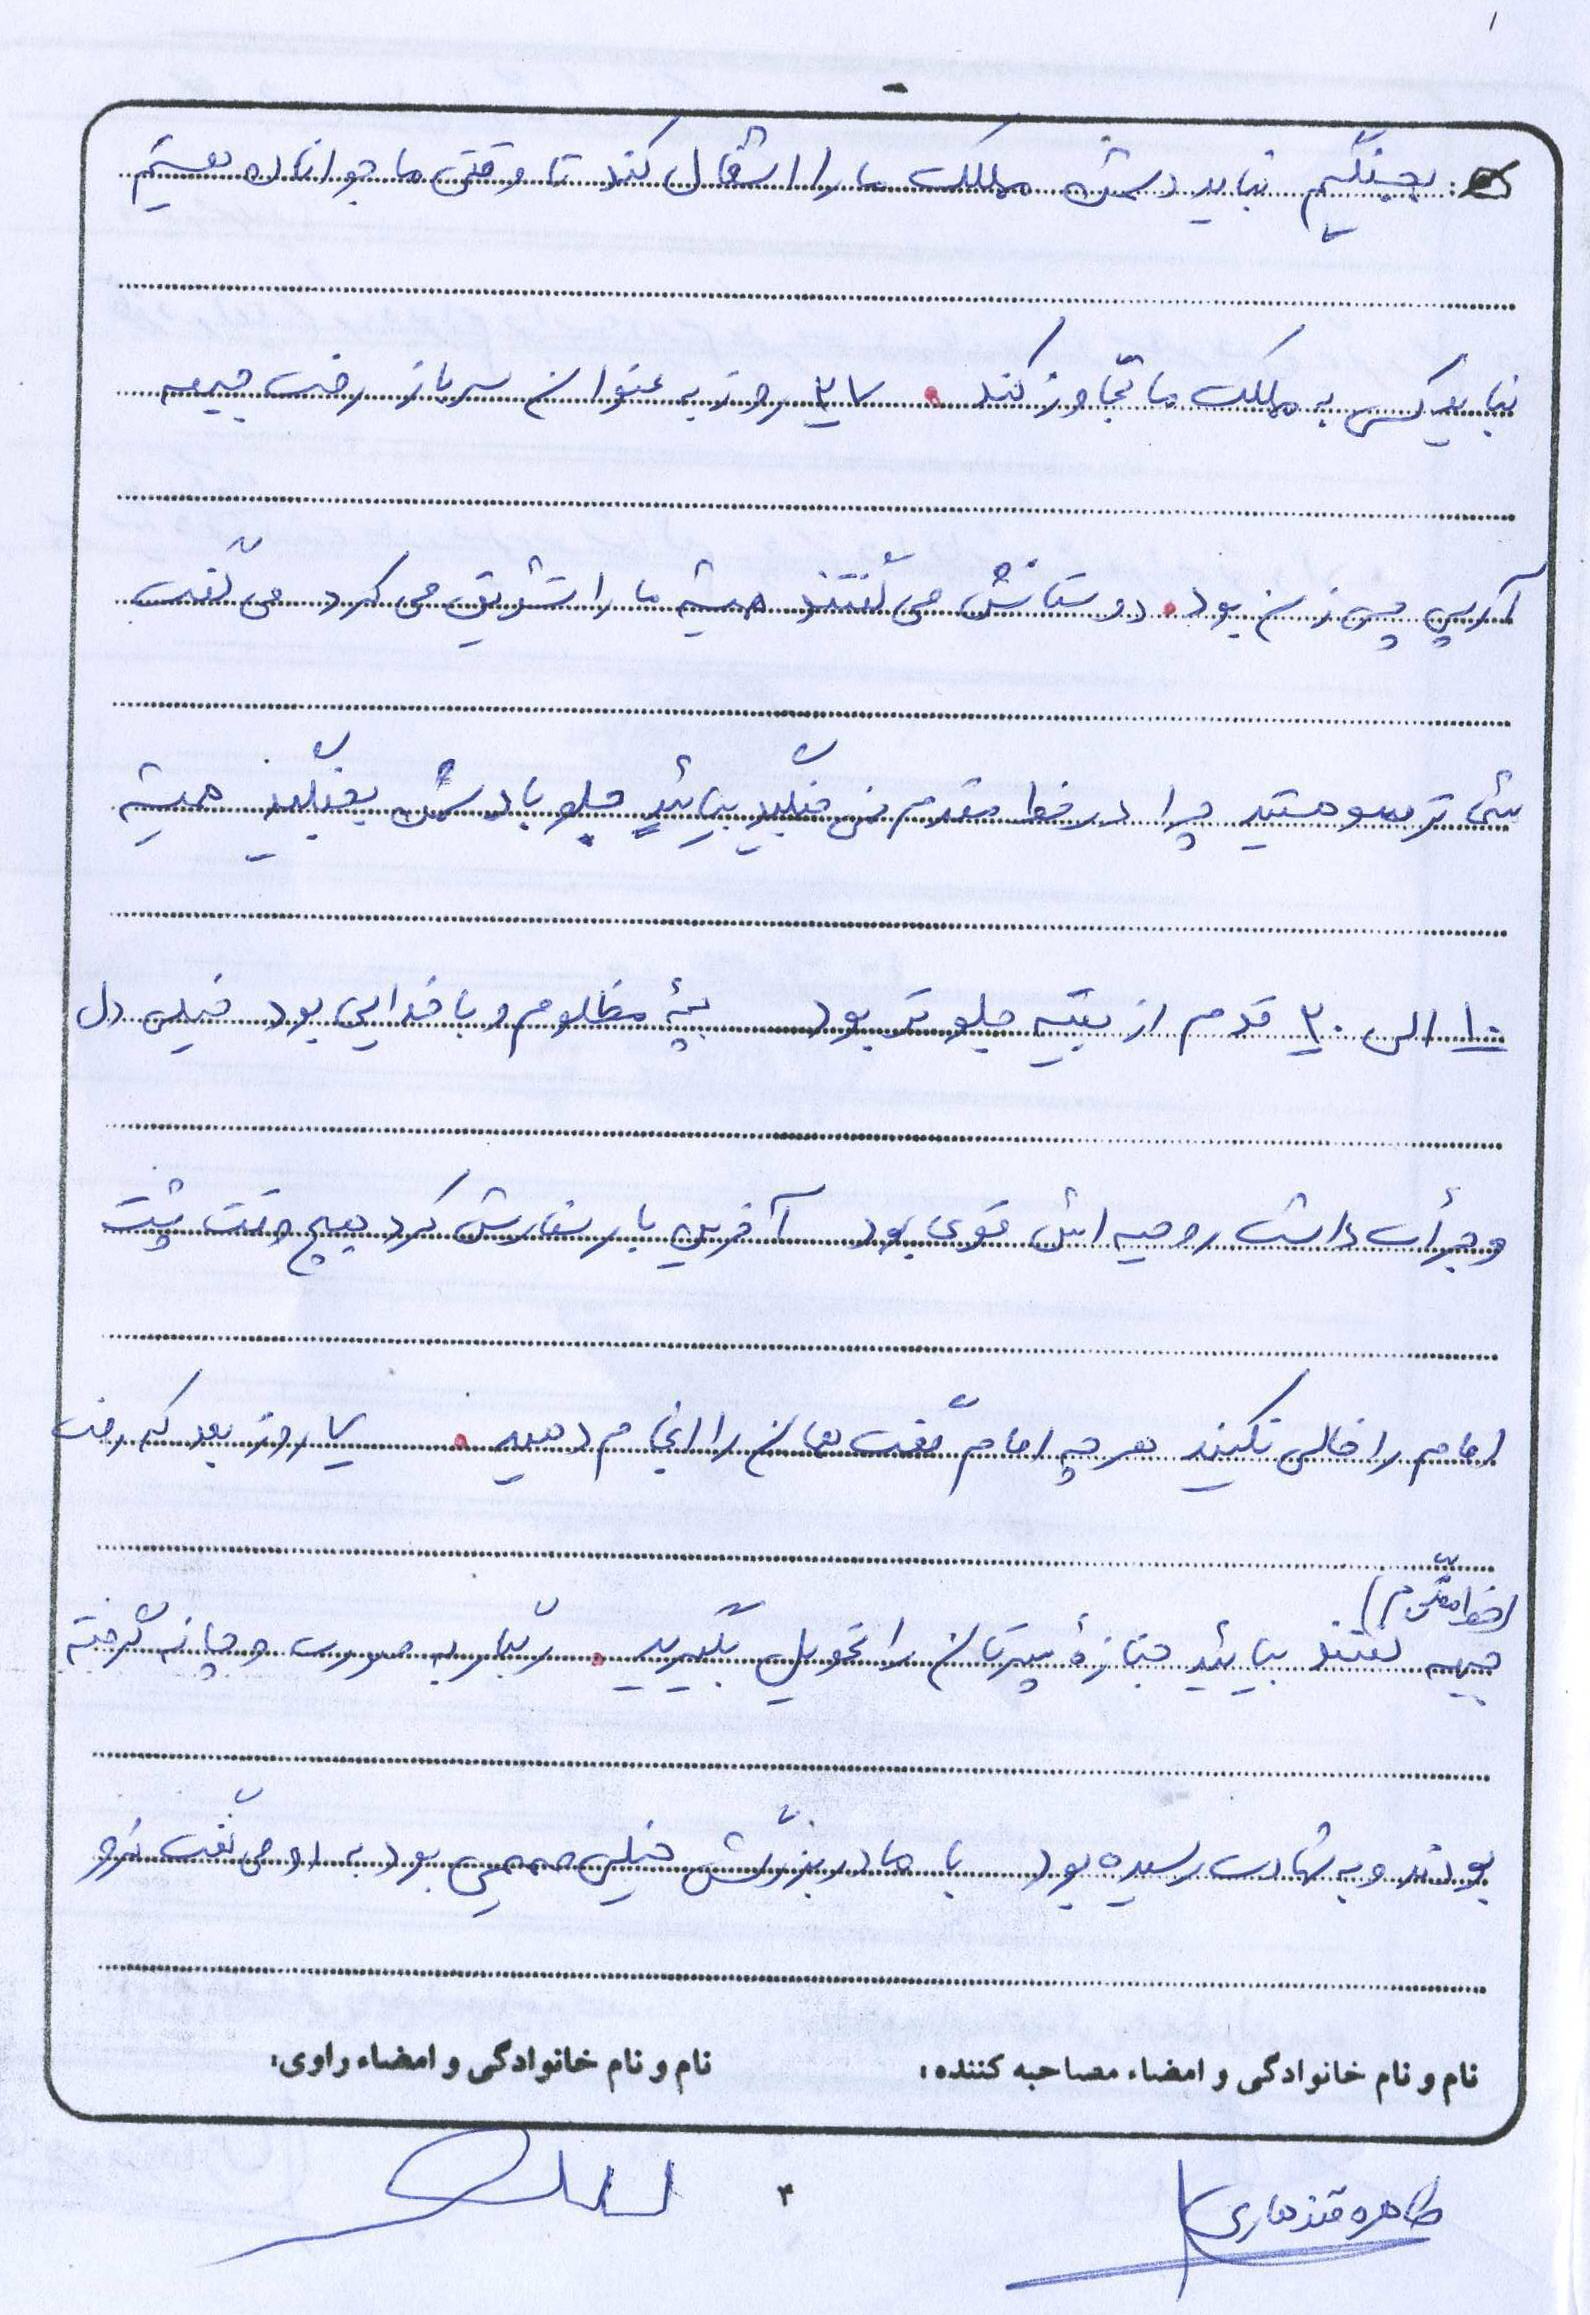 بجنگیم نباید دشمن مملکت ما را اشغال کند تا وقتی ما جوانان هستیم
نباید کسی به مملکت ما تجاوز کند. ۲۷ روز به عنوان سرباز رفت جبهه
آرپی جی زن بود. دوستانش می گفتند همیشه ما را تشویق می کرد می گفت
شما ترسو هستید چرا در خط مقدم نمی جنگید بیائید جلو با دشمن بجنگید همیشه
۱۰ الی ۲۰ قدم از بقیه جلوتر بود بچۀ مظلوم و با خدایی بود خیلی دل
و جرأت داشت روحیه اش قوی بود آخرین بار سفارش کرد هیچ وقت پشت
امام را خالی نکنید هر چه امام گفت همان را انجام دهید. روز بعد که رفت
(خط مقدم)
جبهه گفتند بیائید جنازۀ پسرتان را تحویل بگیرید. رگبار به صورت و چانه گرفته
بودند و به شهادت رسیده بود با مادربزرگش خیلی صمیمی بود به او می گفت نرو
نام و نام خانوادگی و امضاء مصاحبه کننده: نام و نام خانوادگی و امضاء راوی:
طاهره قندهاری
۴